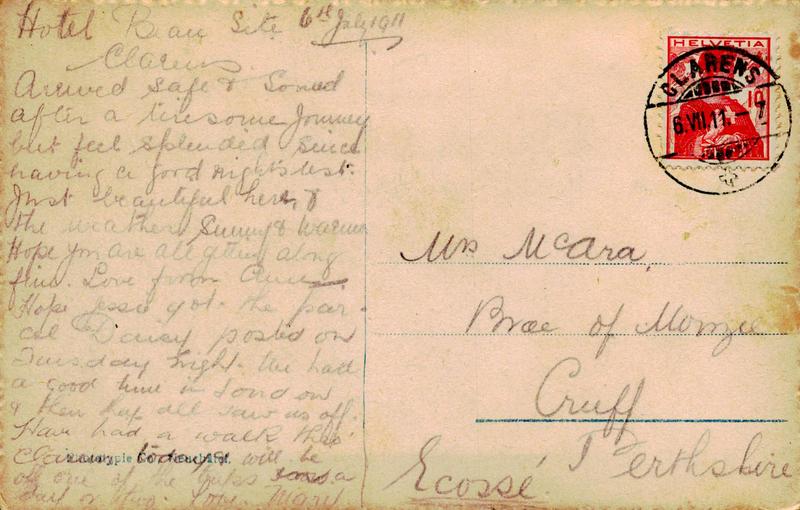 Hotel Beau Site 6th July 1911
Clarens.
Arrived Safe & Sound
after a tiresome Journey
but feel splendid since
having a good night's rest.
Just beautiful here &
the weather Sunny & Warm
Hope you are all getting along
fine. Love from
Hope Jessie got the par-
cel Daisy posted on
Tuesday night. We had
a good time in London
& then they all saw us off.
Have had a walk this
will be
one of the
day or two. Love. Mary
HELVETIA
10
CLARENS
6.VII.11.–7
Mrs McAra,
Brae of Monzie
Crieff
Perthshire
Ecosse.